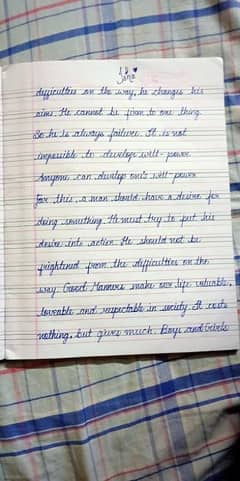 difficulties on the way, he changes his
aim. He cannot be firm to one thing.
So he is always failure. It is not
impossible to develope will-power
Anyone can develop one's will-power
For this, a man should have a desire for
doing something. He must try to put his
desire into action. He should not be
frightened from the difficulties on the
way. Good Manners make our life valuable,
loveable and respectable in society. It costs
nothing, but gives much. Boys and Girls